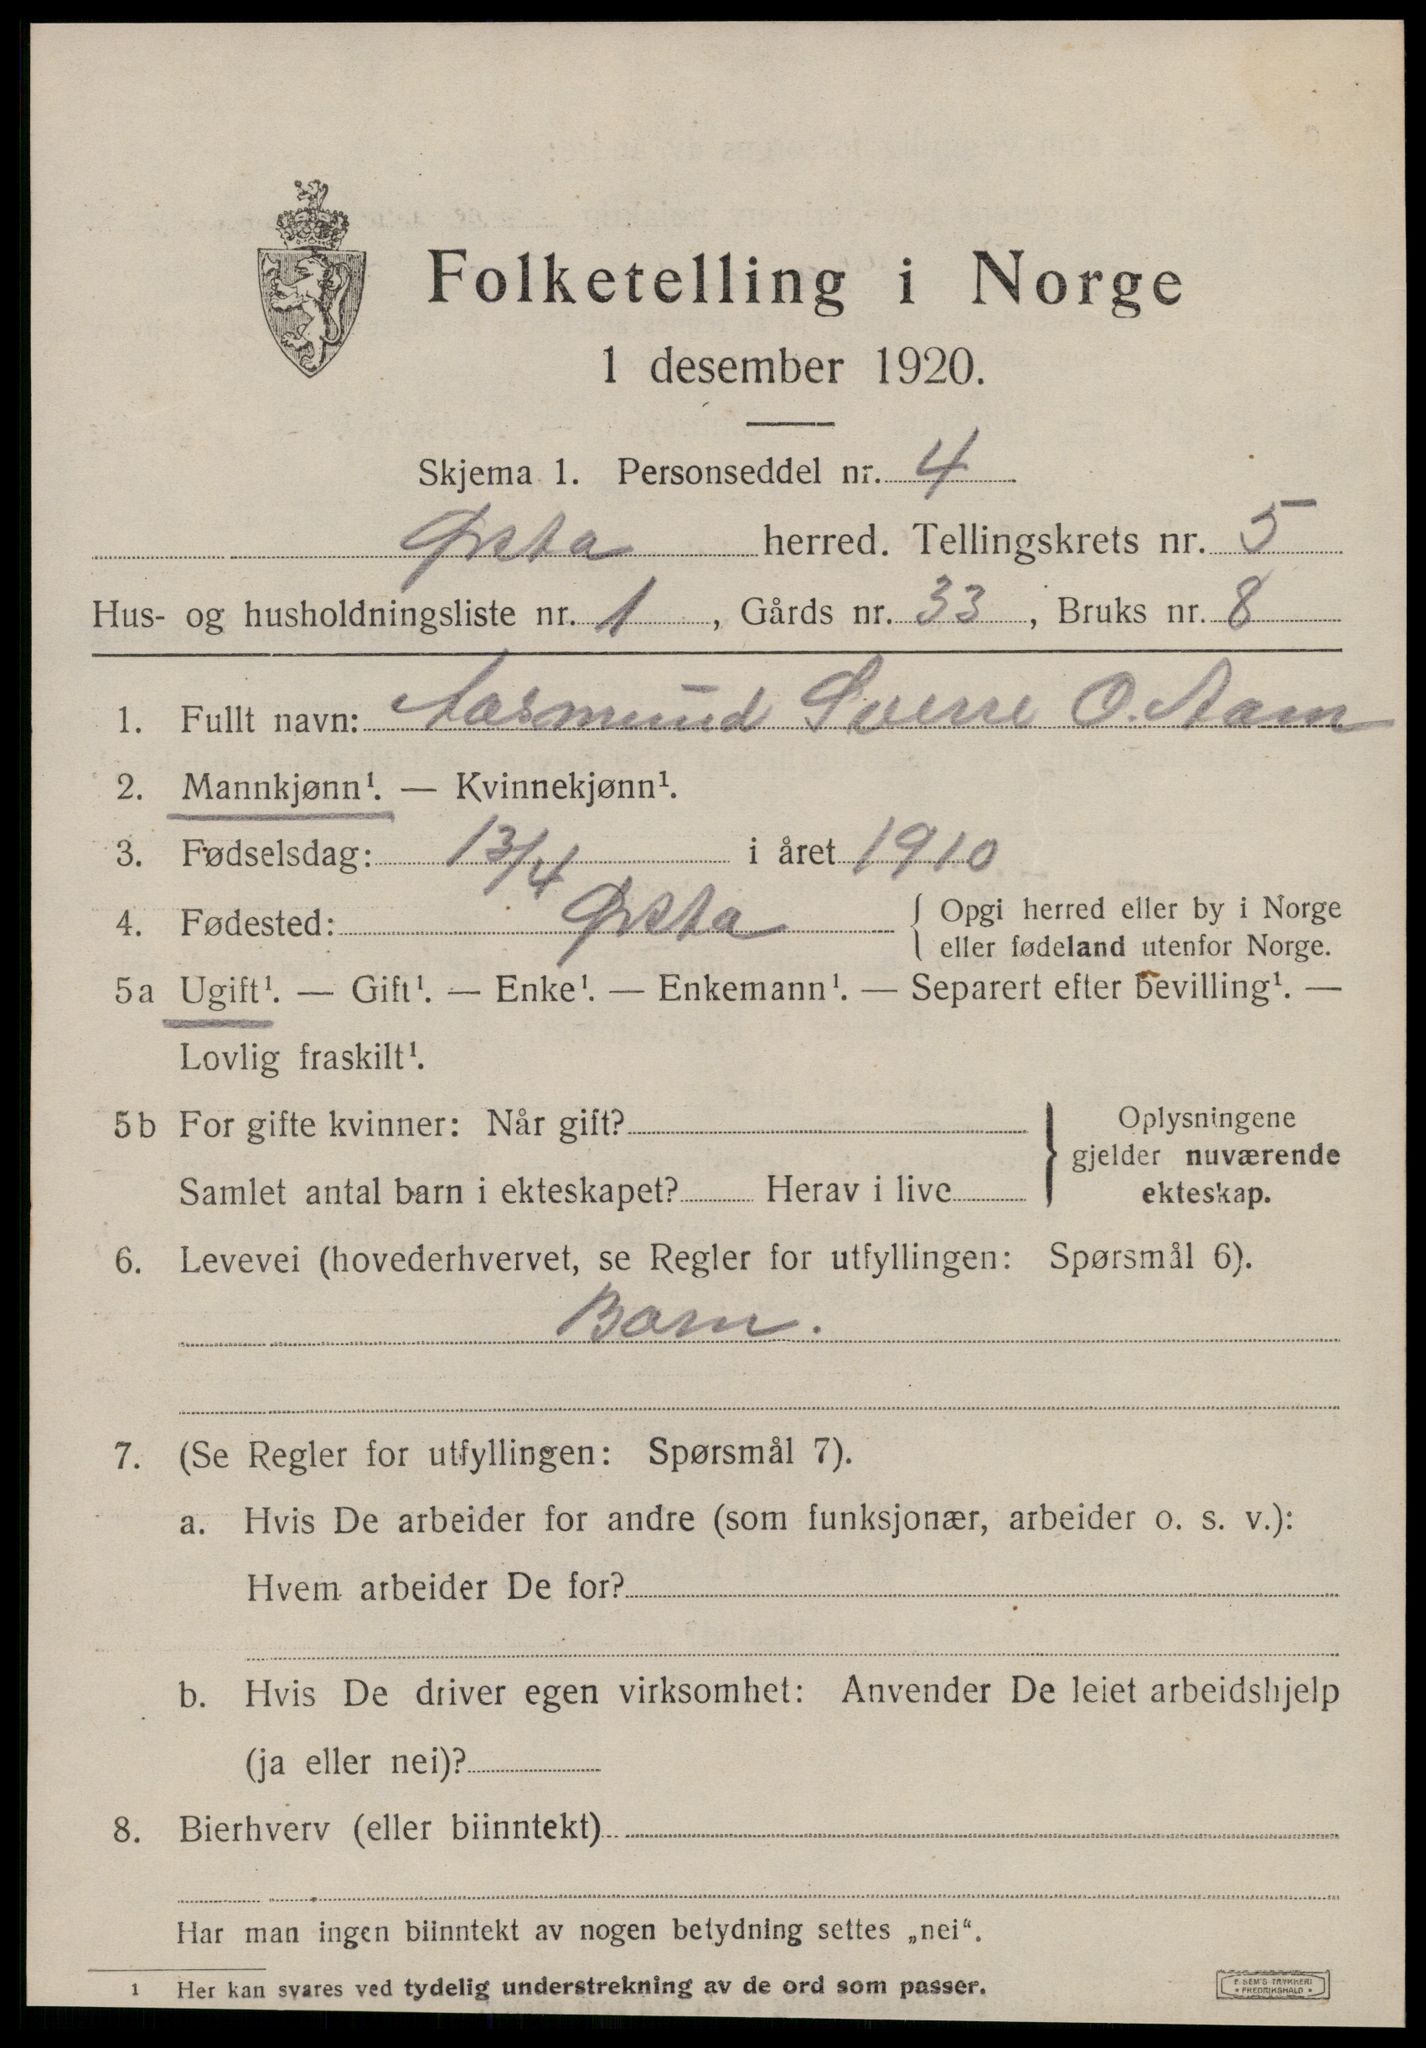 Folketelling i Norge
1 desember 1920.
Skjema 1. Personseddel nr. 4
Ørsta herred. Tellingskrets nr. 5
Hus- og husholdningsliste nr. 1, Gårds nr. 33, Bruks nr. 8
1. Fullt navn: Aasmund Sverre O. Aam
2. Mannkjønn¹. — Kvinnekjønn¹.
3. Fødselsdag: 13/4 i året 1910
4. Fødested: Ørsta { Opgi herred eller by i Norge
eller fødeland utenfor Norge.
5a Ugift¹. — Gift¹. — Enke¹. — Enkemann¹. — Separert efter bevilling¹. —
Lovlig fraskilt¹.
5b For gifte kvinner: Når gift?
Samlet antal barn i ekteskapet? Herav i live
} Oplysningene
gjelder nuværende
ekteskap.
6. Levevei (hovederhvervet, se Regler for utfyllingen: Spørsmål 6).
Barn.
7. (Se Regler for utfyllingen: Spørsmål 7).
a. Hvis De arbeider for andre (som funksjonær, arbeider o. s. v.):
Hvem arbeider De for?
b. Hvis De driver egen virksomhet: Anvender De leiet arbeidshjelp
(ja eller nei)?
8. Bierhverv (eller biinntekt)
Har man ingen biinntekt av nogen betydning settes „nei“.
1 Her kan svares ved tydelig understrekning av de ord som passer.
E. SEM'S TRYKKERI
* FREDRIKSHALD *